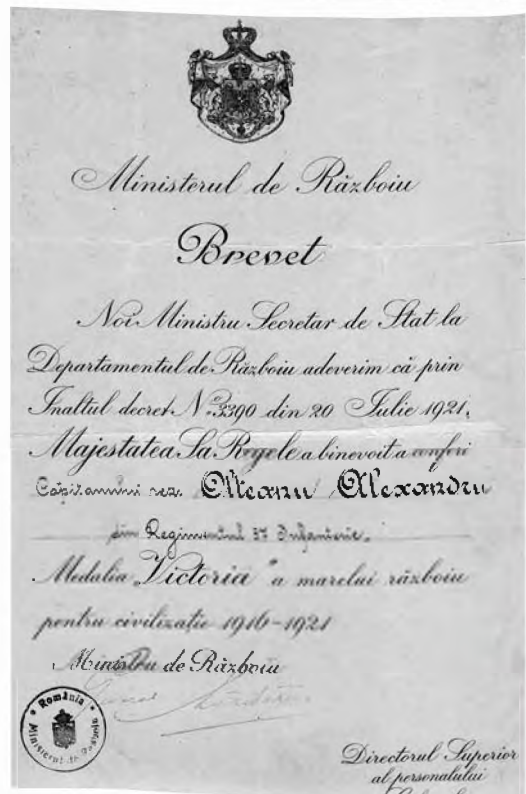 Ministerul de Războiu
Brevet
Noi Ministru Secretar de Stat la
Departamentul de Războiu adeverim că prin
Inaltul decret No 3390 din 20 Iulie 1921,
Majestatea Sa Regele a binevoit a conferi
Capitanului rez. Olteanu Alexandru
din Regimentul 37 Infanterie.
Medalia „Victoria" a marelui războiu
pentru civilizație 1916-1921
Ministru de Războiu
România
Ministerul de Războiu
Directorul Superior
al personalului